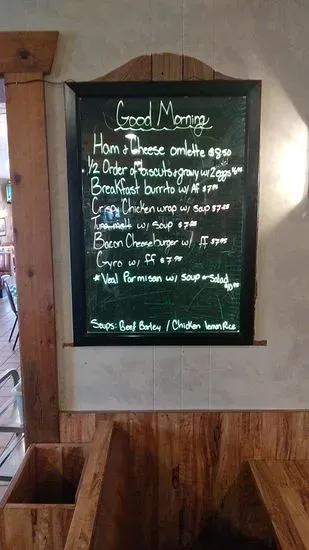 Good Morning
Ham & Cheese omlette $8.50
1/2 Order of biscuits & gravy w/ 2 eggs
Breakfast burrito w/ AF $7.95
Crispy Chicken wrap w/ soup $7.25
Tuna melt w/ soup
Bacon Cheeseburger w/ ff $7.95
Gyro w/ ff $7.95
* Veal Parmisan w/ soup or salad
Soups: Beef Barley / Chicken lemon Rice